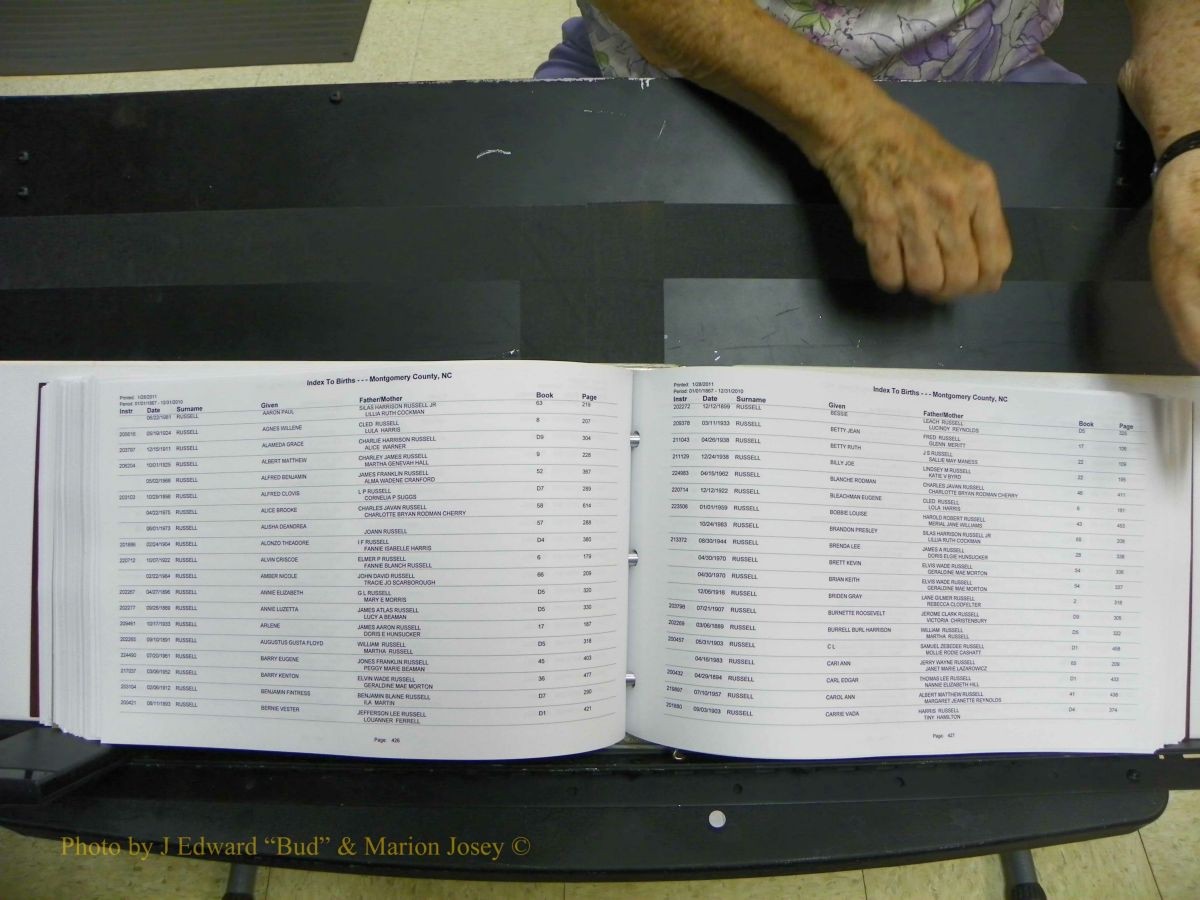 Index To Births - - - Montgomery County, NC
Printed: 1/28/2011
Period: 01/01/1867 - 12/31/2010
Instr Date Surname Given Father/Mother Book Page
RUSSELL AARON PAUL SILAS HARRISON RUSSELL JR 63 216
LILLIA RUTH COCKMAN
RUSSELL AGNES WILLENE CLED RUSSELL 8 207
LULA HARRIS
12/15/1911 RUSSELL ALAMEDA GRACE CHARLIE HARRISON RUSSELL D9 304
ALICE WARNER
206204 10/01/1925 RUSSELL ALBERT MATTHEW CHARLEY JAMES RUSSELL 9 228
MARTHA GENEVAH HALL
RUSSELL ALFRED BENJAMIN JAMES FRANKLIN RUSSELL 52 367
ALMA WADENE CRANFORD
203103 RUSSELL ALFRED CLOVIS L P RUSSELL D7 289
CORNELIA P SUGGS
04/22/1975 RUSSELL ALICE BROOKE CHARLES JAVAN RUSSELL 58 614
CHARLOTTE BRYAN RODMAN CHERRY
06/01/1973 RUSSELL ALISHA DEANDREA 57 288
JOANN RUSSELL
201886 02/24/1904 RUSSELL ALONZO THEADORE I F RUSSELL D4 380
FANNIE ISABELLE HARRIS
220712 10/07/1922 RUSSELL ALVIN CRISCOE ELMER P RUSSELL 6 179
FANNIE BLANCH RUSSELL
02/22/1984 RUSSELL AMBER NICOLE JOHN DAVID RUSSELL 66 209
TRACIE JO SCARBOROUGH
202267 04/27/1896 RUSSELL ANNIE ELIZABETH G L RUSSELL D5 320
MARY E MORRIS
202277 09/26/1889 RUSSELL ANNIE LUZETTA JAMES ATLAS RUSSELL D5 330
LUCY A BEAMAN
209461 10/17/1933 RUSSELL ARLENE JAMES AARON RUSSELL 17 187
DORIS E HUNSUCKER
202265 09/10/1891 RUSSELL AUGUSTUS GUSTA FLOYD WILLIAM RUSSELL D5 318
MARTHA RUSSELL
224490 07/20/1961 RUSSELL BARRY EUGENE JONES FRANKLIN RUSSELL 45 403
PEGGY MARIE BEAMAN
217037 03/06/1952 RUSSELL BARRY KENTON ELVIN WADE RUSSELL 36 477
GERALDINE MAE MORTON
203104 02/06/1912 RUSSELL BENJAMIN FINTRESS BENJAMIN BLAINE RUSSELL D7 290
ILA MARTIN
200421 08/11/1893 RUSSELL BERNIE VESTER JEFFERSON LEE RUSSELL D1 421
LOUANNER FERRELL
Page: 426
Index To Births - - - Montgomery County, NC
Printed: 1/28/2011
Period: 01/01/1867 - 12/31/2010
Instr Date Surname Given Father/Mother Book Page
202272 12/12/1899 RUSSELL BESSIE LEACH RUSSELL D5 325
LUCINDY REYNOLDS
209378 03/11/1933 RUSSELL BETTY JEAN FRED RUSSELL 17 106
GLENN MERITT
211043 04/26/1938 RUSSELL BETTY RUTH J S RUSSELL 22 109
SALLIE MAY MANESS
211129 12/24/1938 RUSSELL BILLY JOE LINDSEY M RUSSELL 22 195
KATIE V BYRD
224983 04/15/1962 RUSSELL BLANCHE RODMAN CHARLES JAVAN RUSSELL 46 411
CHARLOTTE BRYAN RODMAN CHERRY
220714 12/12/1922 RUSSELL BLEACHMAN EUGENE CLED RUSSELL 6 181
LOLA HARRIS
223506 01/01/1959 RUSSELL BOBBIE LOUISE HAROLD ROBERT RUSSELL 43 453
MERIAL JANE WILLIAMS
10/24/1983 RUSSELL BRANDON PRESLEY SILAS HARRISON RUSSELL JR
LILLIA RUTH COCKMAN
213372 08/30/1944 RUSSELL BRENDA LEE JAMES A RUSSELL 28 338
DORIS ELGIE HUNSUCKER
04/30/1970 RUSSELL BRETT KEVIN ELVIS WADE RUSSELL 54 336
GERALDINE MAE MORTON
04/30/1970 RUSSELL BRIAN KEITH ELVIS WADE RUSSELL 54 337
GERALDINE MAE MORTON
12/06/1916 RUSSELL BRIDEN GRAY LANE GILMER RUSSELL 2 318
REBECCA CLODFELTER
203798 07/21/1907 RUSSELL BURNETTE ROOSEVELT JEROME CLARK RUSSELL D9 305
VICTORIA CHRISTENBURY
202269 03/06/1889 RUSSELL BURRELL BURL HARRISON WILLIAM RUSSELL D5 322
MARTHA RUSSELL
200457 05/31/1903 RUSSELL C L SAMUEL ZEBEDEE RUSSELL D1
MOLLIE RODIE CASHATT
04/16/1983 RUSSELL CARI ANN JERRY WAYNE RUSSELL 209
JANET MARIE LAZAROWICZ
200432 04/29/1894 RUSSELL CARL EDGAR THOMAS LEE RUSSELL D1 432
NANNIE ELIZABETH HILL
219807 07/10/1957 RUSSELL CAROL ANN ALBERT MATTHEW RUSSELL 41 436
MARGARET JEANETTE REYNOLDS
201880 09/03/1903 RUSSELL CARRIE VADA HARRIS RUSSELL D4 374
TINY HAMILTON
Page: 427
Photo by J Edward “Bud” & Marion Josey ©